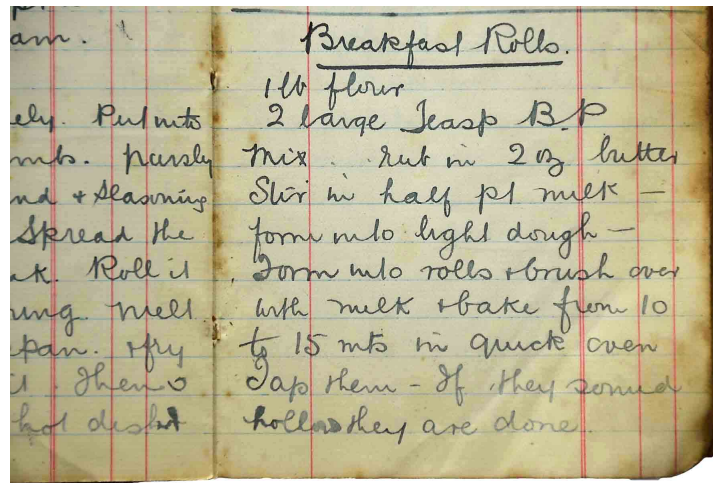 am.
ely. Put into
mbs. parsly
nd + Seasoning
Spread the
ak. Roll it
ung melt
pan. + fry
it. Then
hot dish
Breakfast Rolls.
1 lb flour
2 large Teasp B.P
Mix. Rub in 2 oz butter
Stir in half pt milk —
form into light dough —
Form into rolls + brush over
with milk + bake from 10
to 15 mts in quick oven
Tap them - If they sound
hollow they are done.